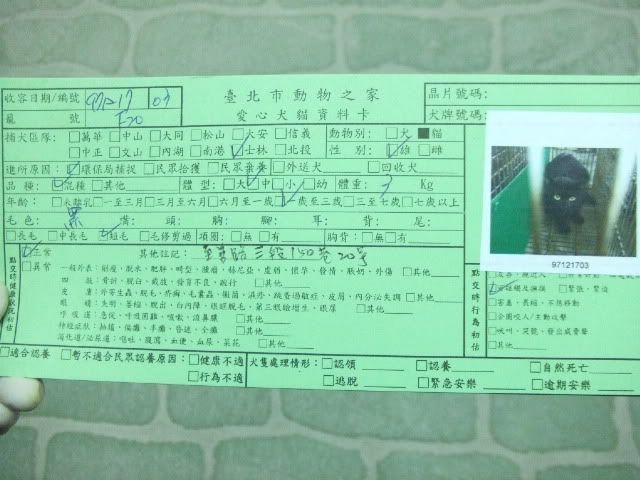 臺北市動物之家
愛心犬貓資料卡
收容日期/編號 97.12.17 03
籠號 F20
晶片號碼:
犬牌號碼:
捕犬區隊: □萬華 □中山 □大同 □松山 □大安 □信義
□中正 □文山 □內湖 □南港 ☑士林 □北投
動物別: □犬 ■貓
性別: ☑雄 □雌
進所原因: ☑環保局捕捉 □民眾拾獲 □民眾棄養 □外送犬 □回收犬
品種: ☑混種 □其他
體型: □大 ☑中 □小 □幼 體重: 3 Kg
年齡: □未離乳 □一至三月 □三月至六月 □六月至一歲 ☑一歲至三歲 □三至七歲 □七歲以上
毛色: 黑 嘴: 頭: 胸: 腳: 耳: 背: 尾:
□長毛 □中長毛 ☑短毛 □毛修剪過 項圈: □無 □有 胸背: □無 □有
97121703
點交時健康狀況初估
☑正常
□異常
其他註記: 三段150巷20號
一般外表: 削瘦、脫水、肥胖、畸型、腫瘤、赫尼亞、虛弱、懷孕、發情、脹奶、外傷 □其他
四肢: 骨折、脫臼、截肢、發育不良、跛行 □其他
皮膚: 外寄生蟲、脫毛、疥癬、毛囊蟲、黴菌、濕疹、疏骨過敏症、皮屑、內分泌失調 □其他
眼睛: 失明、萎縮、脫出、白內障、眼瞼脫毛、第三眼瞼增生、眼屎 □其他
呼吸道: 急促、呼吸困難、咳嗽、流鼻膿 □其他
神經症狀: 抽搐、偏癱、半癱、昏迷、全癱 □其他
消化道/泌尿道: 嘔吐、腹瀉、血便、血尿、菜花 □其他
點交時行為初估
□緊張、緊迫
□害羞、畏縮、不想移動
□企圖咬人/主動攻擊
□吠叫、哭號、發出威脅聲
□其他
□適合認養 □暫不適合民眾認養原因: □健康不適
□行為不適
犬隻處理情形: □認領 □認養 □自然死亡
□逃脫 □緊急安樂 □逾期安樂